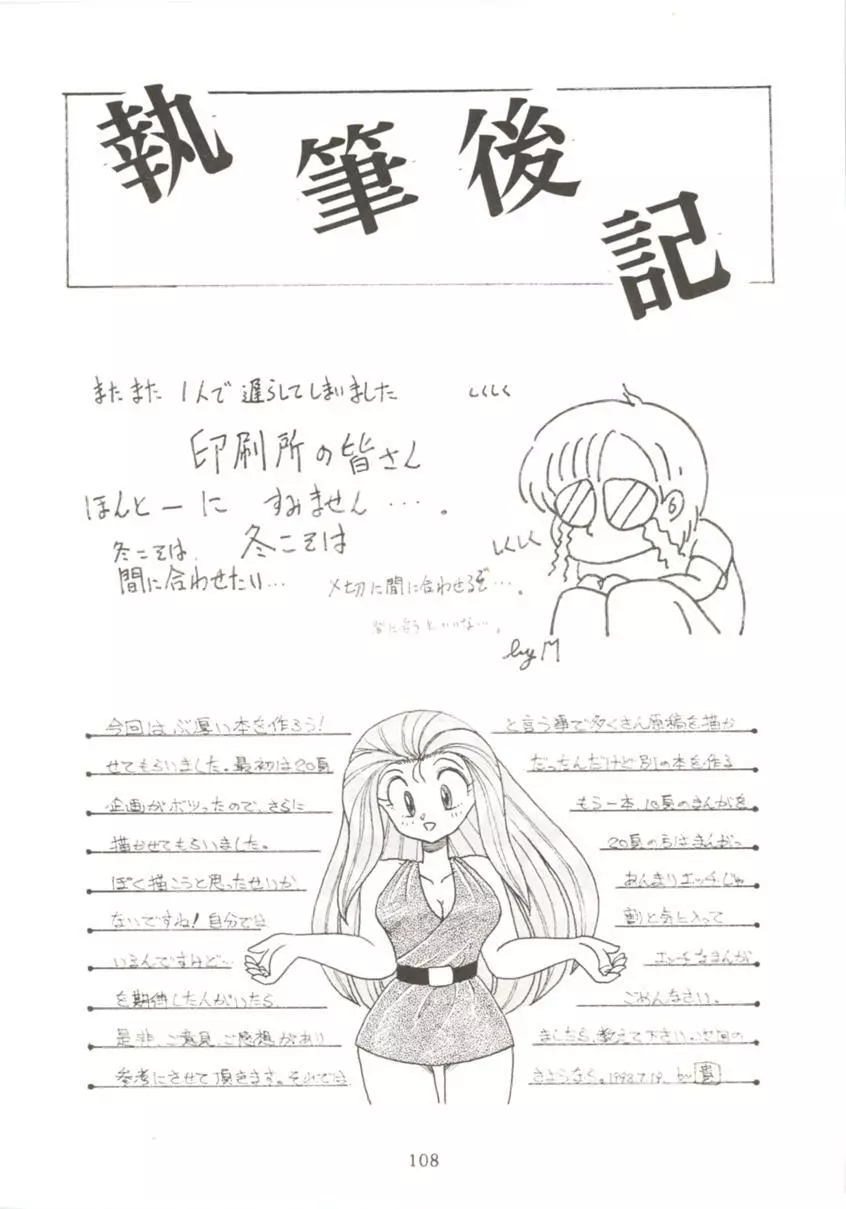 執筆後記
またまた 1人で 遅らしてしまいました
しくしく
印刷所の皆さん
ほんとーに すみません…。
しくしく
冬こそは、 冬こそは
間に合わせたい…
〆切に間に合わせるぞ…。
by M
今回はぶ厚い本を作ろう! と言う事で多くさん原稿を描か
せてもらいました。最初は20頁 だったんだけど別の本を作る
企画がボツったので、さらに もう一本、10頁のまんがを
描かせてもらいました。 20頁の方はまんがっ
ぽく描こうと思ったせいか あんまりエッチじゃ
ないですね! 自分では 割と気に入って
いるんですけど… エッチなまんが
を期待した人がいたら ごめんなさい。
是非、ご意見、ご感想があり ましたら、教えて下さい。次回の
参考にさせて頂きます。それでは さようなら。1998.7.19. by 貴
108